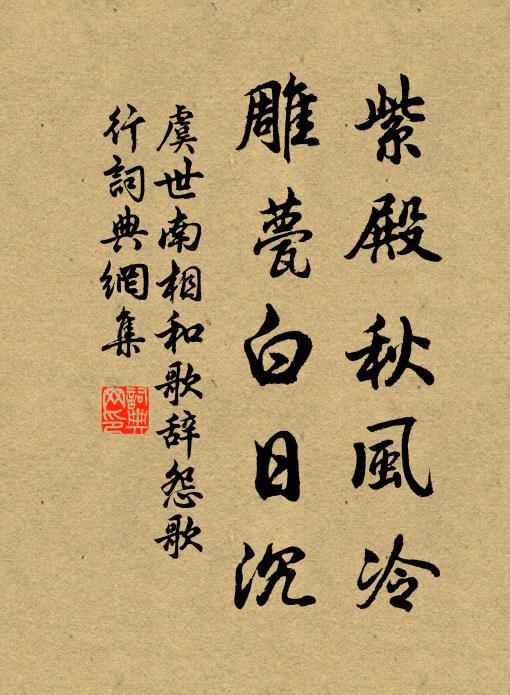 紫殿秋風冷
雕甍白日沉
虞世南相和歌辞怨歌
行詞典網集
詞典
网印